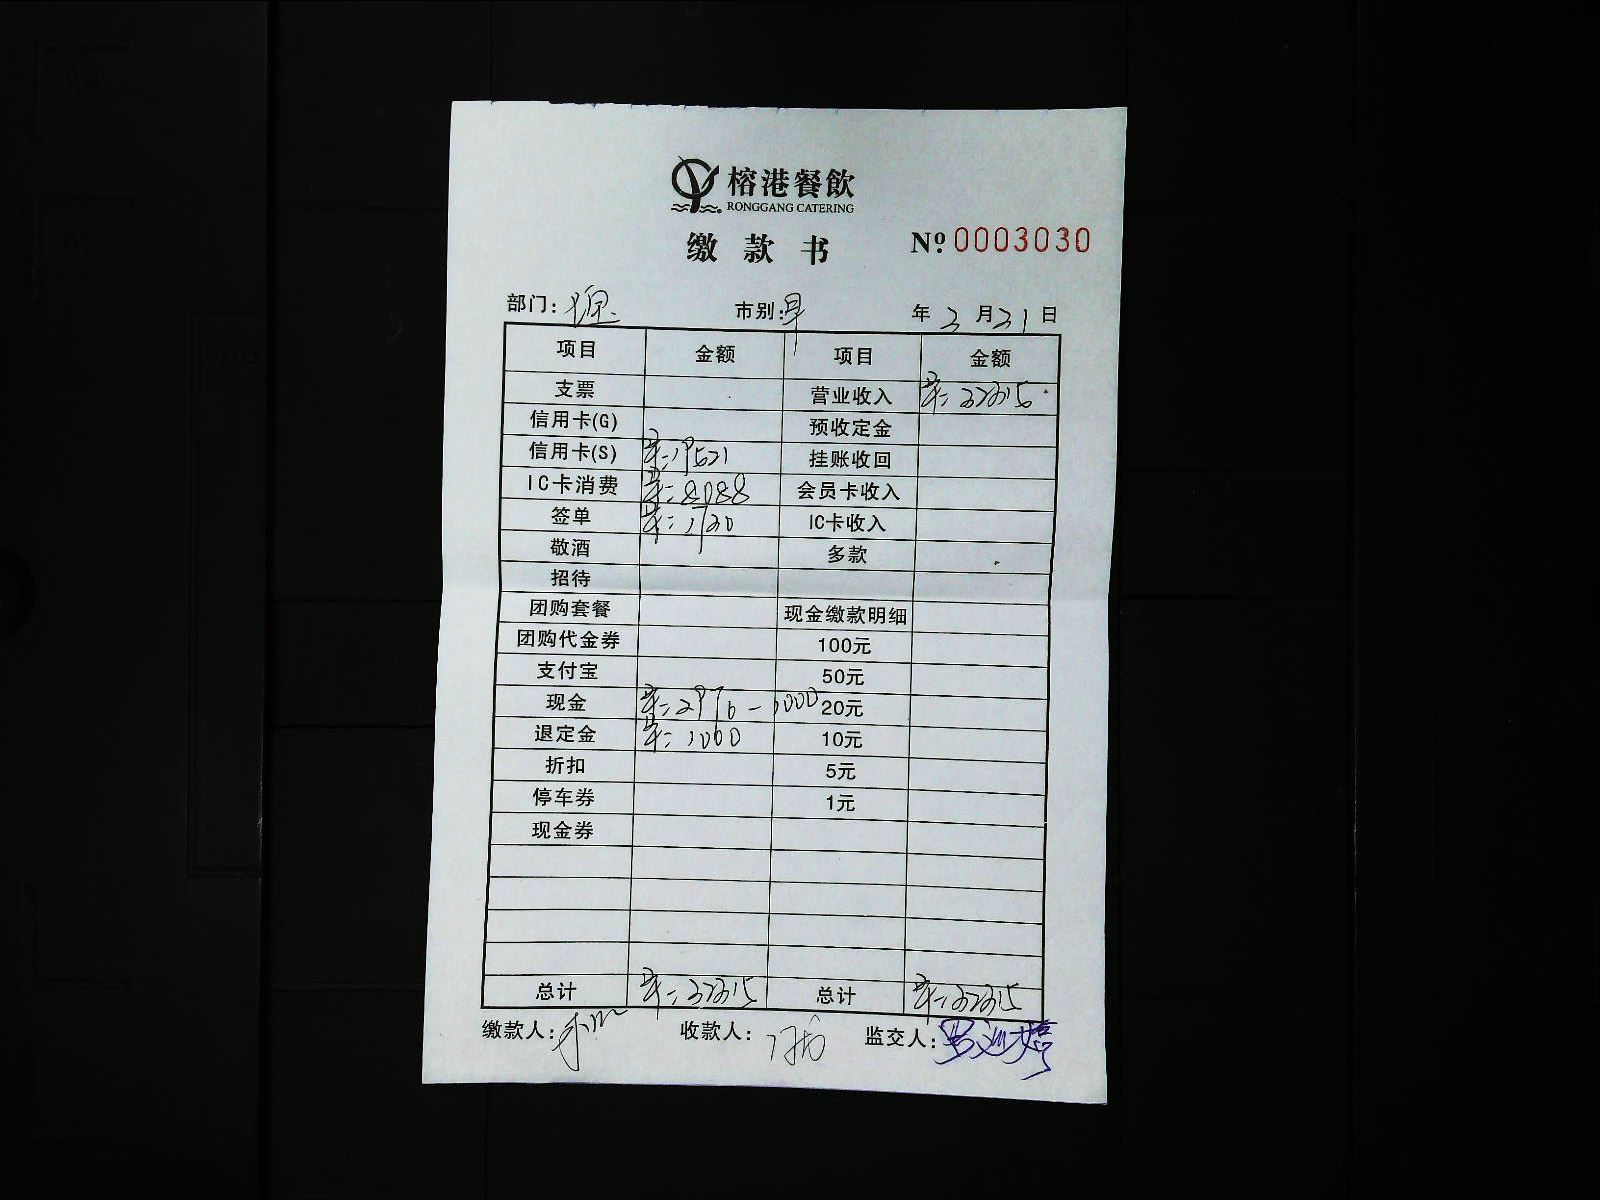 榕港餐飲
RONGGANG CATERING
缴款书 Nº 0003030
部门: 市别:早 年3月21日
项目 金额 项目 金额
支票 营业收入
信用卡(G) 预收定金
信用卡(S) 19521 挂账收回
IC卡消费 8088 会员卡收入
签单 1730 IC卡收入
敬酒 多款
招待
团购套餐 现金缴款明细
团购代金券 100元
支付宝 50元
现金 2976-1000 20元
退定金 1000 10元
折扣 5元
停车券 1元
现金券
总计 总计
缴款人: 收款人: 监交人: